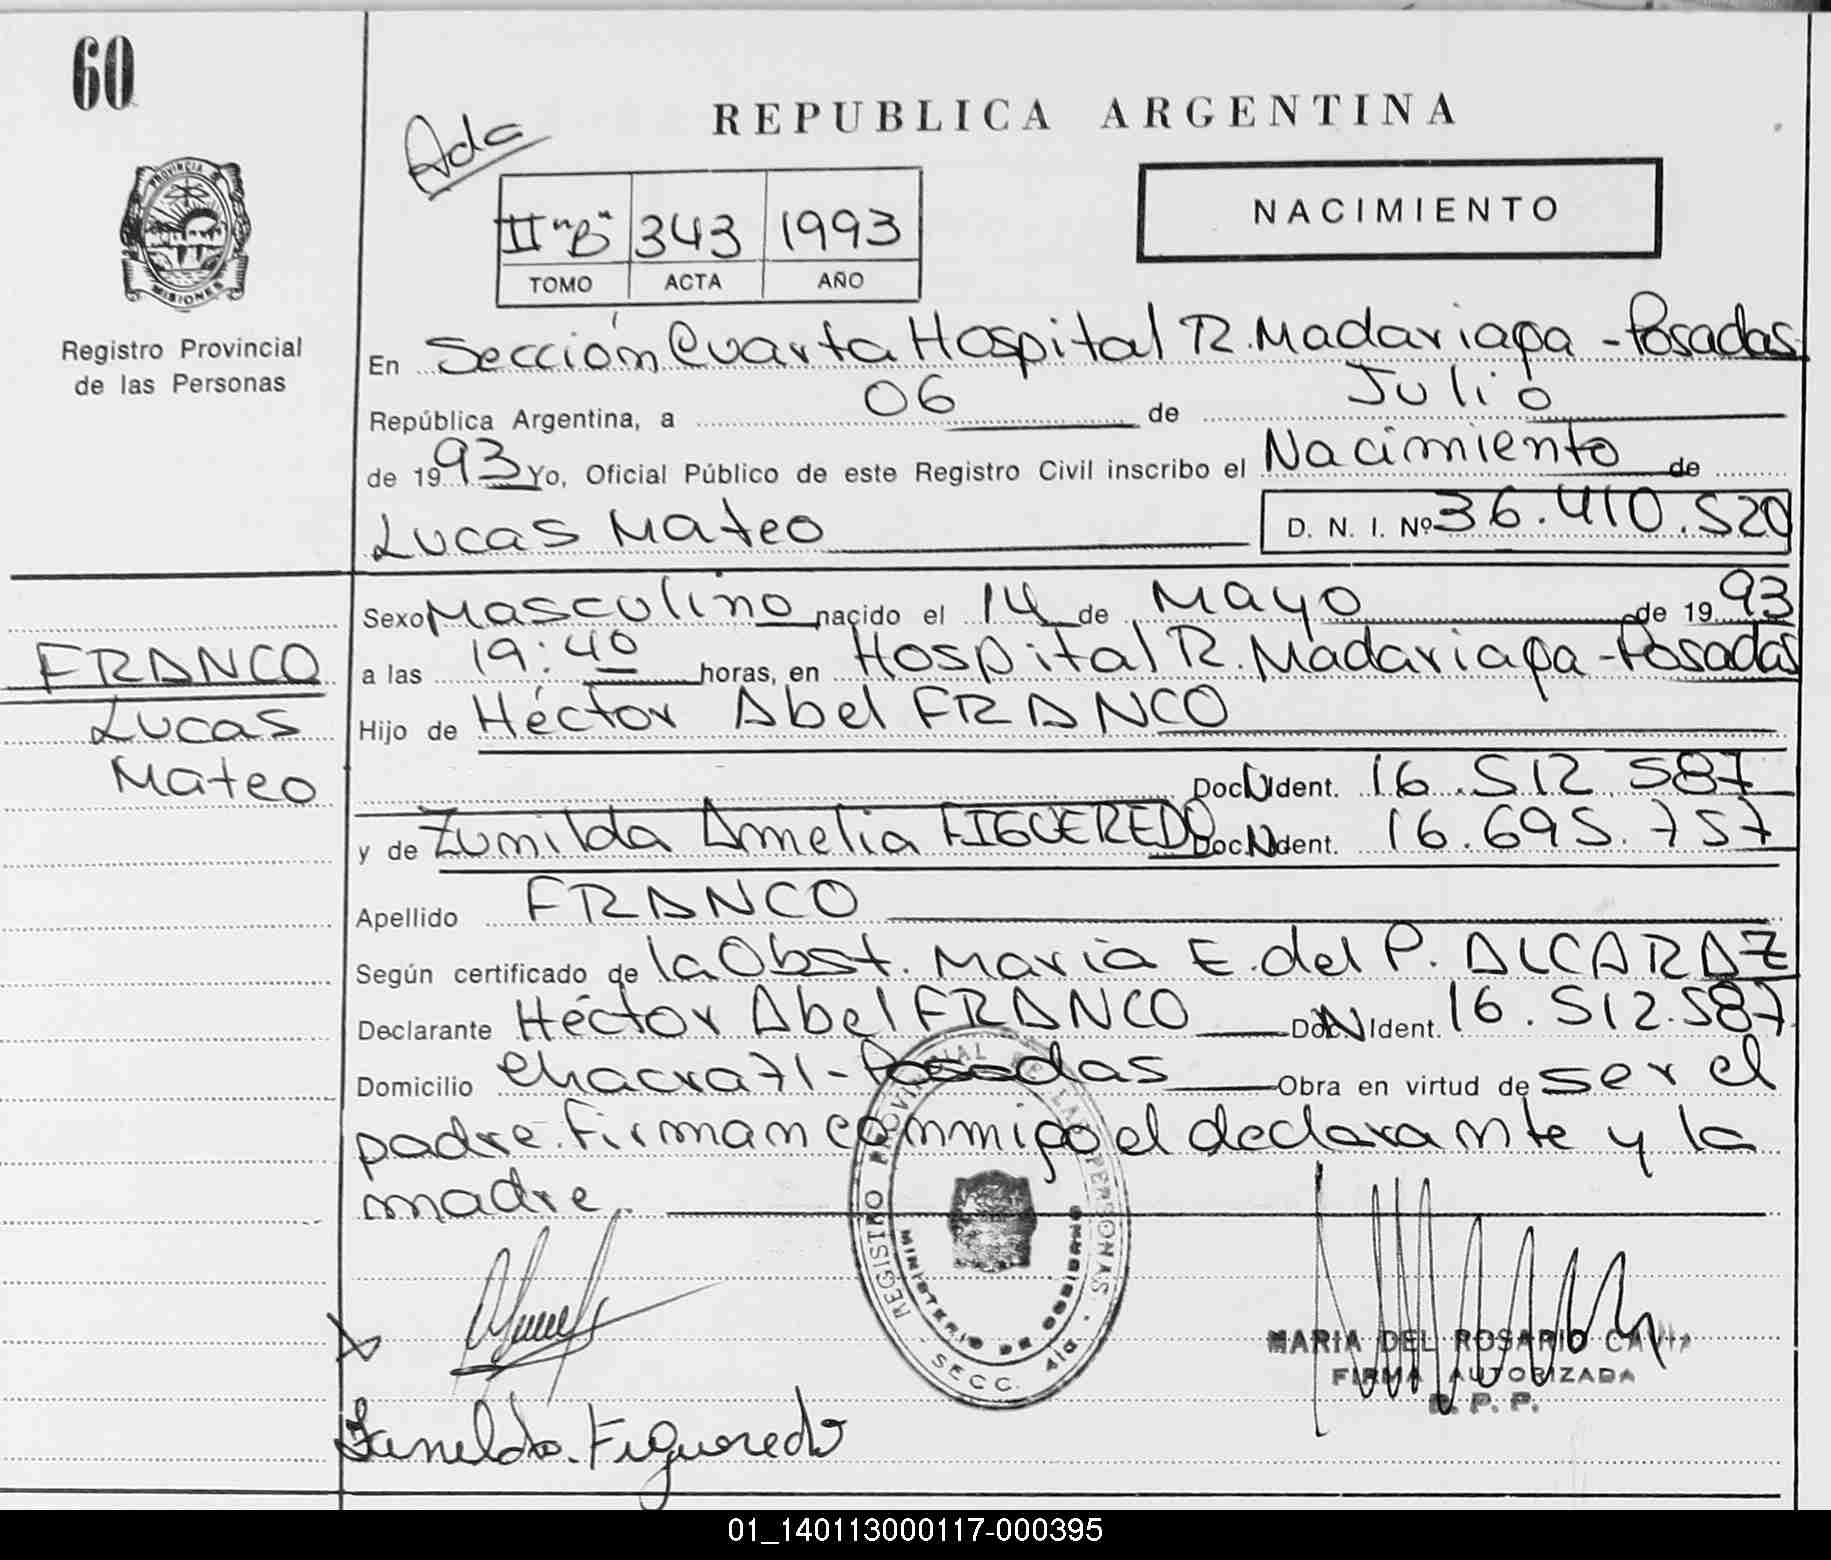 60
Ada
REPUBLICA ARGENTINA
PROVINCIA DE
MISIONES
II "B" 343 1993
TOMO ACTA AÑO
NACIMIENTO
Registro Provincial
de las Personas
En Sección Cuarta Hospital R. Madariaga - Posadas
República Argentina, a 06 de Julio
de 1993 Yo, Oficial Público de este Registro Civil inscribo el Nacimiento de
Lucas Mateo D. N. I. Nº 36.410.520
Sexo Masculino nacido el 14 de Mayo de 1993
FRANCO
Lucas
Mateo
a las 19:40 horas, en Hospital R. Madariaga - Posadas
Hijo de Héctor Abel FRANCO
Doc. N Ident. 16.512.587
y de Zunilda Amelia FIGUEREDO Doc. N Ident. 16.695.757
Apellido FRANCO
Según certificado de la Obst. Maria E. del P. ALCARAZ
Declarante Héctor Abel FRANCO Doc. N Ident. 16.512.587
Domicilio Chacra 71 - Posadas Obra en virtud de ser el
padre. Firman conmigo el declarante y la
madre.
REGISTRO PROVINCIAL DE LAS PERSONAS
MINISTERIO DE GOBIERNO
SECC. 4ta.
MARIA DEL ROSARIO
FIRMA AUTORIZADA
R. P. P.
Figueredo
01_140113000117-000395